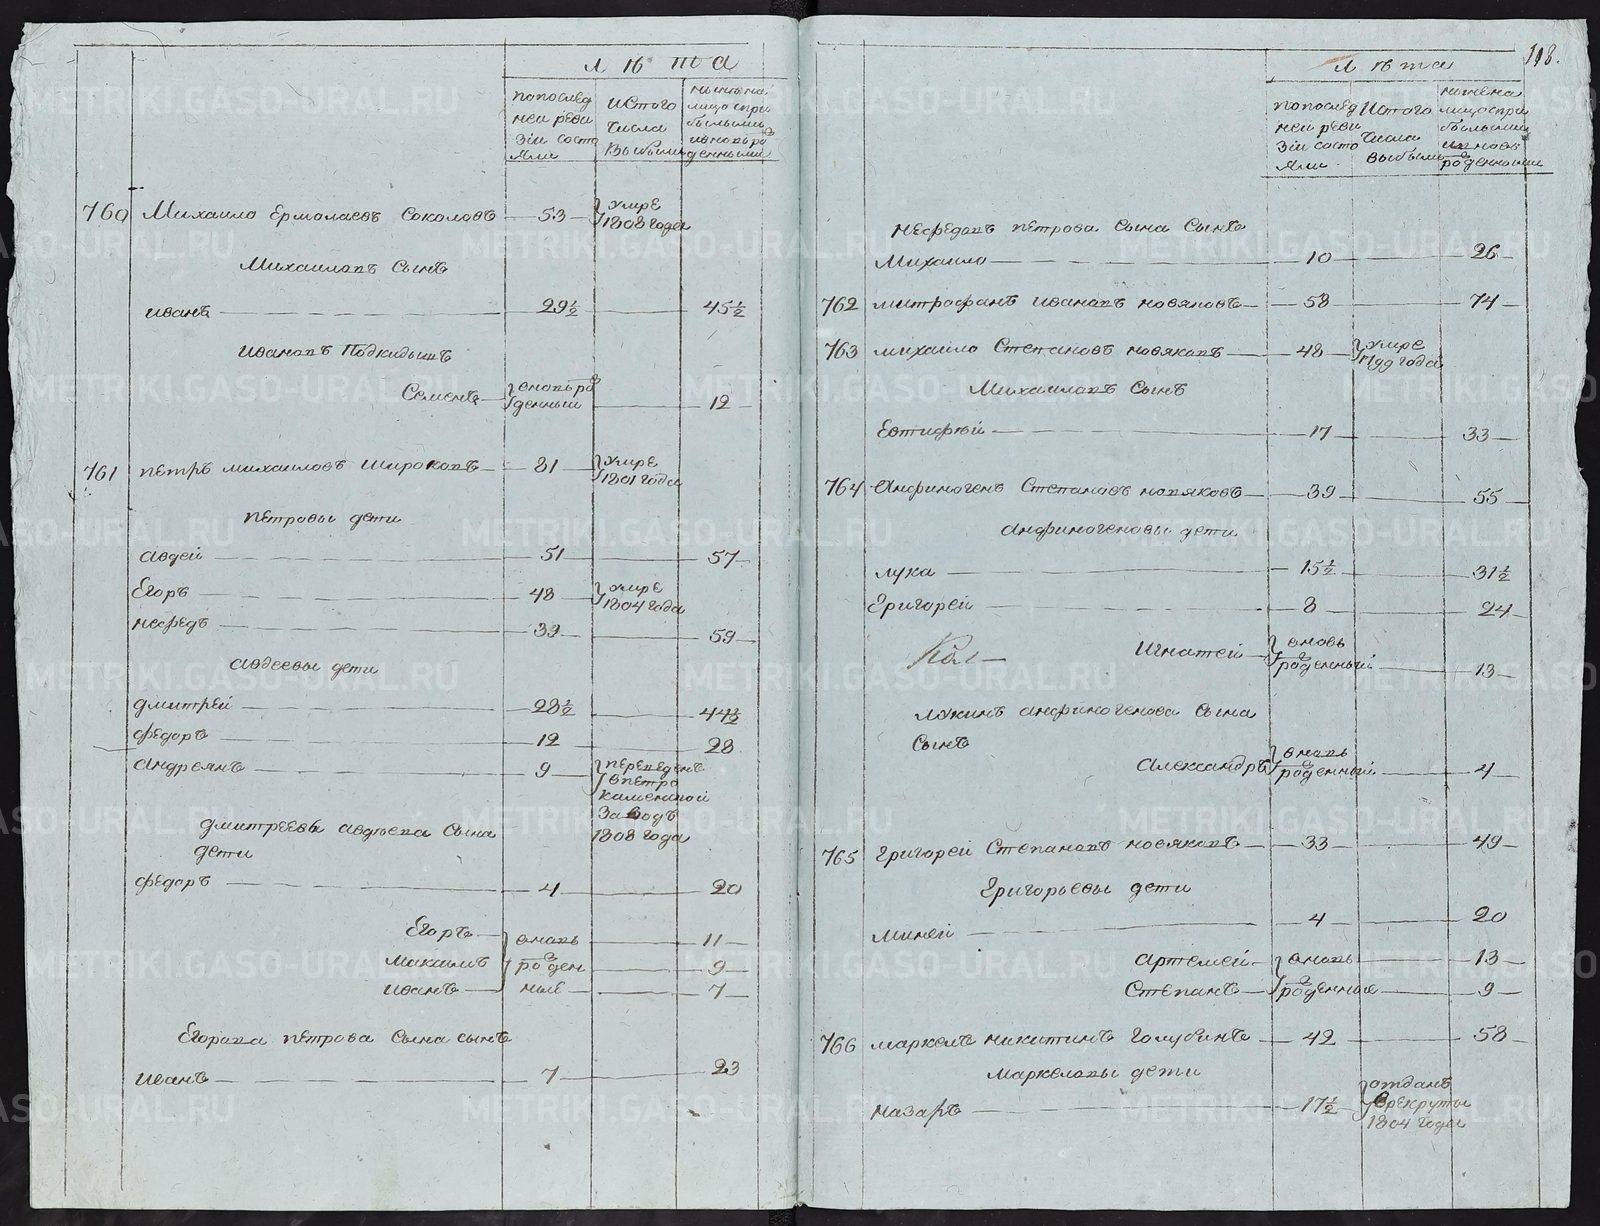 118.
лѣта
попослед
ней реви
зіи состо
яли
Истого
числа
выбыли
ныне на
лицо спри
былыми
ивновь ро
жденными
760 Михаило Ермолаевъ Соколовъ 53 умре
1808 года
Михаиловъ Сынъ
иванъ 29½ 45½
ивановъ Подкидышъ
Семенъ вновь ро
жденный 12
761 петръ михаиловъ широковъ 81 умре
1801 года
петровы дети
авдей 51 57
Егоръ 48 умре
1804 года
нефедъ 39 59
авдеевы дети
дмитрей 28½ 44½
федоръ 12 28
андреянъ 9 переведенъ
впетро
каменской
заводъ
1808 года
дмитреевы авдѣева сына
дети
федоръ 4 20
Егоръ вновь 11
максимъ рожден 9
иванъ ные 7
Егорова петрова сына сынъ
иванъ 7 23
лѣта
попослед
ней реви
зіи состо
яли
Истого
числа
выбыли
ныне на
лицо спри
былыми
ивновь
рожденными
нефедовъ петрова сына сынъ
Михаило 10 26
762 митрофанъ ивановъ новяковъ 58 74
763 михаило Степановъ новяковъ 48 умре
1799 года
Михаиловъ сынъ
Евтифѣй 17 33
764 Анфиногенъ Степановъ новяковъ 39 55
анфиногеновы дети
лука 15½ 31½
Григорей 8 24
Игнатей вновь
рожденный 13
лукинъ анфиногенова сына
сынъ
Александръ вновь
рожденный 4
765 Григорей Степановъ новяковъ 33 49
Григорьевы дети
миней 4 20
артемей вновь 13
Степанъ рожденные 9
766 маркелъ никитинъ голубинъ 42 58
маркеловы дети
назаръ 17½ отданъ
врекруты
1804 года
METRIKI.GASO-URAL.RU